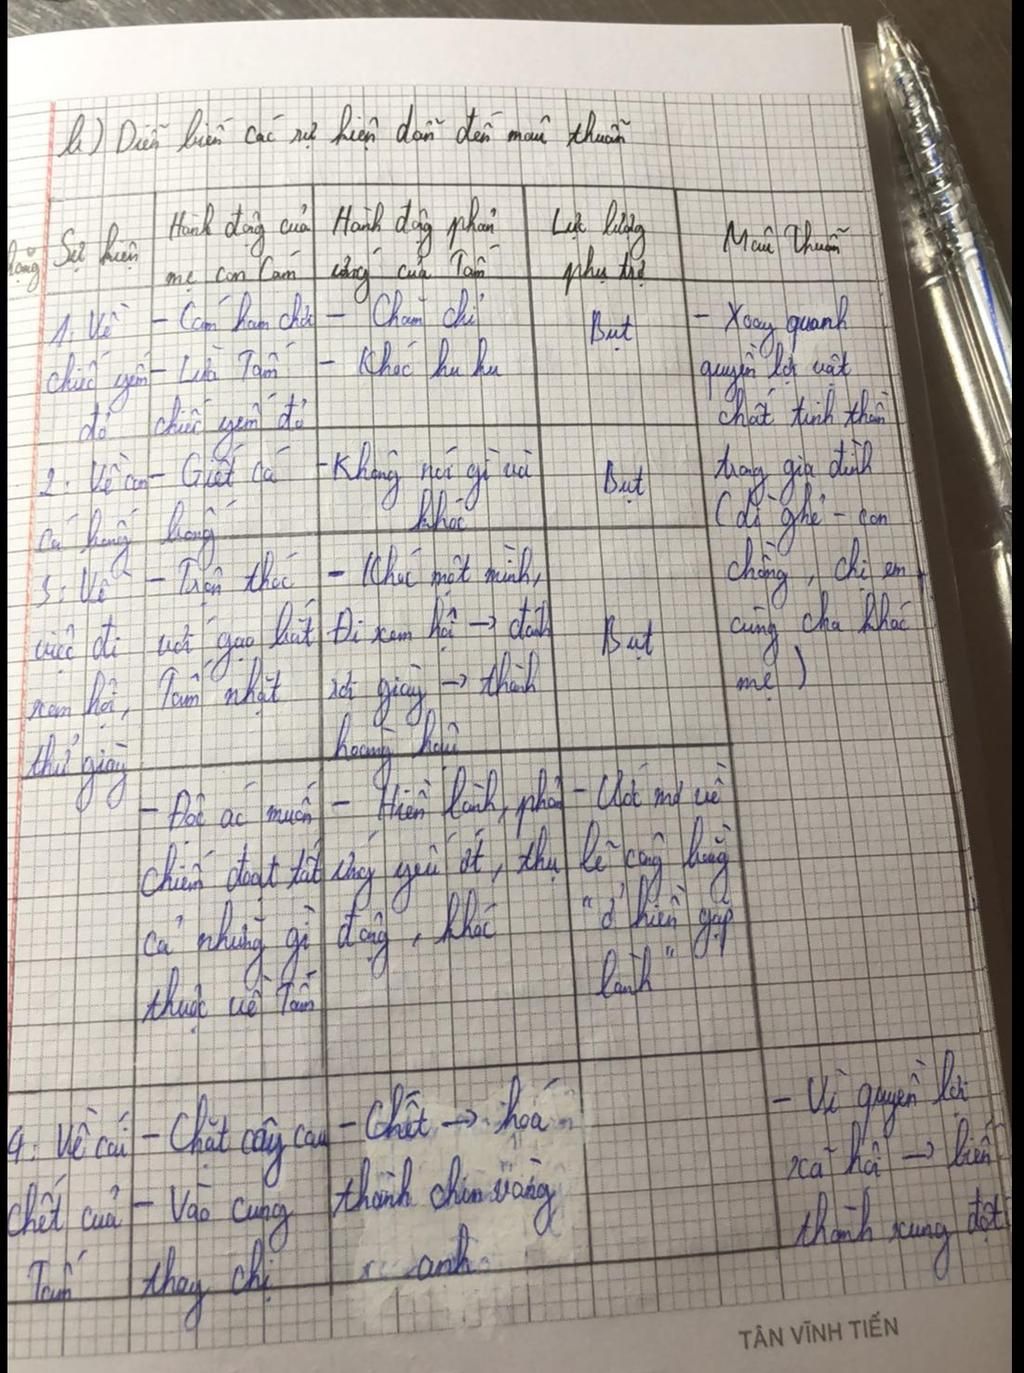 b) Diễn biến các sự kiện dẫn đến mâu thuẫn
Sự kiện
Hành động của
mẹ con Cám
Hành động phản
ứng của Tấm
Lực lượng
phụ trợ
Mâu Thuẫn
1: Về
chiếc yếm
đỏ
- Cám ham chơi
- Lừa Tấm
chiếc yếm đỏ
- Chăm chỉ
- Khóc hu hu
Bụt
- Xoay quanh
quyền lợi vật
chất tinh thần
trong gia đình
(dì ghẻ - con
chồng, chị em
cùng cha khác
mẹ)
2: Về con
cá bống
- Giết cá
bống
- Không nói gì và
khóc
Bụt
3: Về
việc đi
xem hội,
thử giày
- Trộn thóc
với gạo bắt
Tấm nhặt
- Khóc một mình,
Đi xem hội → đánh
rơi giày → thành
hoàng hậu
Bụt
- Độc ác muốn
chiếm đoạt tất
cả những gì
thuộc về Tấm
- Hiền lành, phản
ứng yếu ớt, thụ
động, khóc
- Ước mơ về
lẽ công bằng
"ở hiền gặp
lành"
4: Về cái
chết của
Tấm
- Chặt cây cau
- Vào cung
thay chị
- Chết → hoá
thành chim vàng
anh
- Vì quyền lợi
xã hội → biến
thành xung đột
TÂN VĨNH TIẾN